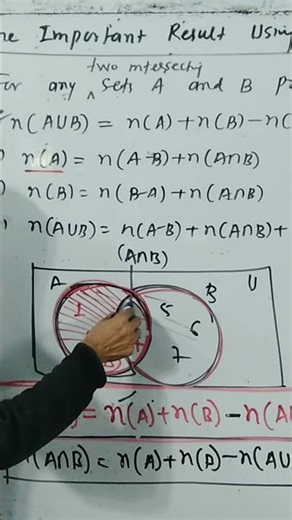 he Important Result Using
two intersecting
For any ^ Sets A and B p
n(A∪B) = n(A)+n(B)-n(
n(A) = n(A-B)+n(A∩B)
) n(B) = n(B-A)+n(A∩B)
n(A∪B) = n(A-B)+n(A∩B)+
(A∩B)
A B U
1 5
6
7
= n(A)+n(B)-n(A
(A∩B) = n(A)+n(B)-n(AU